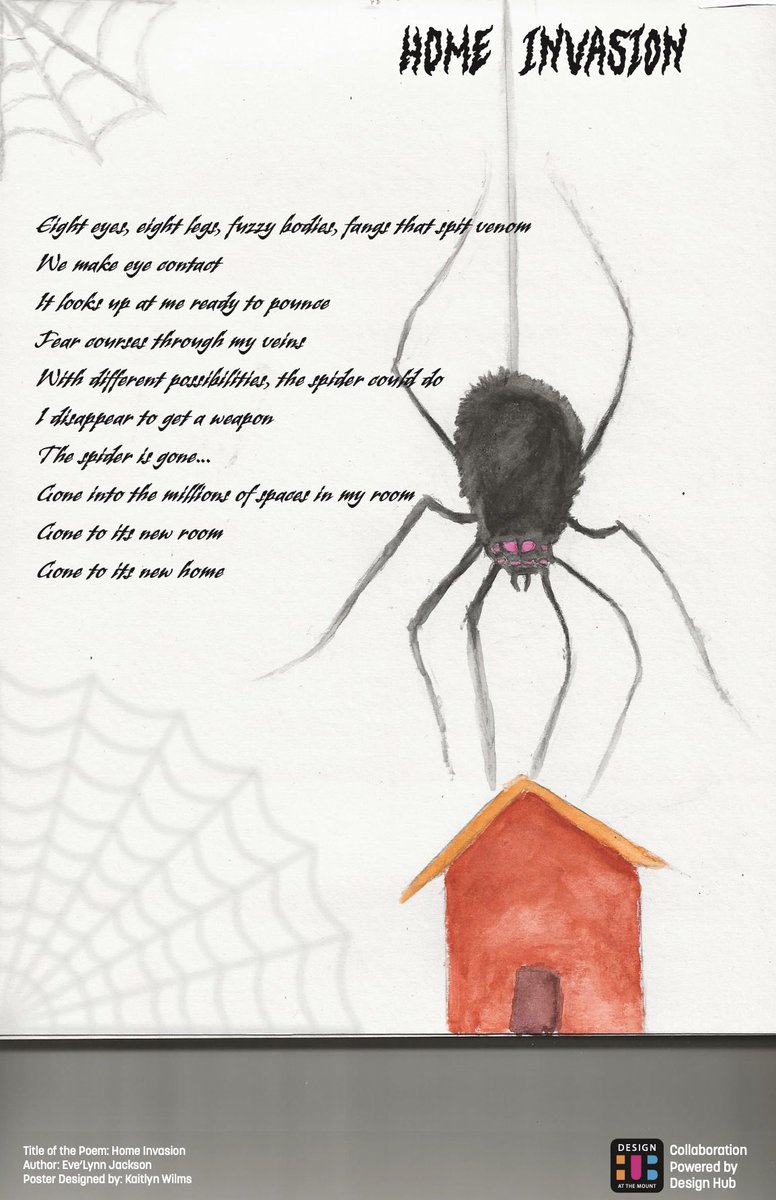 HOME INVASION
Eight eyes, eight legs, fuzzy bodies, fangs that spit venom
We make eye contact
It looks up at me ready to pounce
Fear courses through my veins
With different possibilities, the spider could do
I disappear to get a weapon
The spider is gone...
Gone into the millions of spaces in my room
Gone to its new room
Gone to its new home
Title of the Poem: Home Invasion
Author: Eve'Lynn Jackson
Poster Designed by: Kaitlyn Wilms
DESIGN
HUB
AT THE MOUNT
Collaboration
Powered by
Design Hub